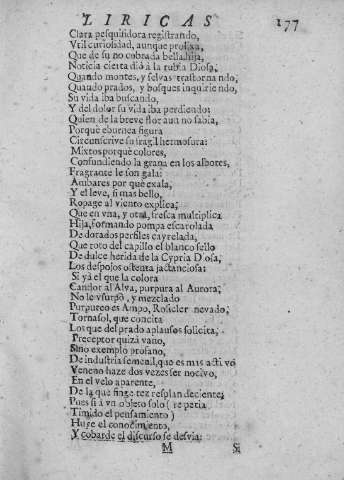 LIRICAS 177
Clara pesquisidora registrando,
Vtil curiosidad, aunque prolixa,
Que de su no cobrada bella hija,
Noticia cierta diò à la rubia Diosa,
Quando montes, y selvas trastornando,
Quando prados, y bosques inquiriendo,
Su vida iba buscando,
Y del dolor su vida iba perdiendo:
Quien de la breve flor aun no sabia,
Porquè eburnea figura
Circunscrive su fragil hermosura:
Mixtos porquè colores,
Confundiendo la grana en los albores,
Fragrante le son gala:
Ambares por què exala,
Y el leve, si mas bello,
Ropage al viento explica;
Que en vna, y otra, fresca multiplica
Hija, formando pompa escarolada
De dorados perfiles cayrelada,
Que roto del capillo el blanco sello
De dulce herida de la Cypria Diosa,
Los despojos ostenta jactanciosa:
Si yà el que la colora
Candor al Alva, purpura al Aurora,
No le vsurpò, y mezclado
Purpureo es Ampo, Rosicler nevado,
Tornasol, que concita
Los que del prado aplausos solicita,
Preceptor quizà vano,
Sino exemplo profano,
De industria femenil, que es mas activo
Veneno haze dos vezes ser nocivo,
En el velo aparente,
De la que finge tez resplandeciente;
Pues si à vn objeto solo (repetia
Timido el pensamiento)
Huye el conocimiento,
Y cobarde el discurso se desvia:
M Si